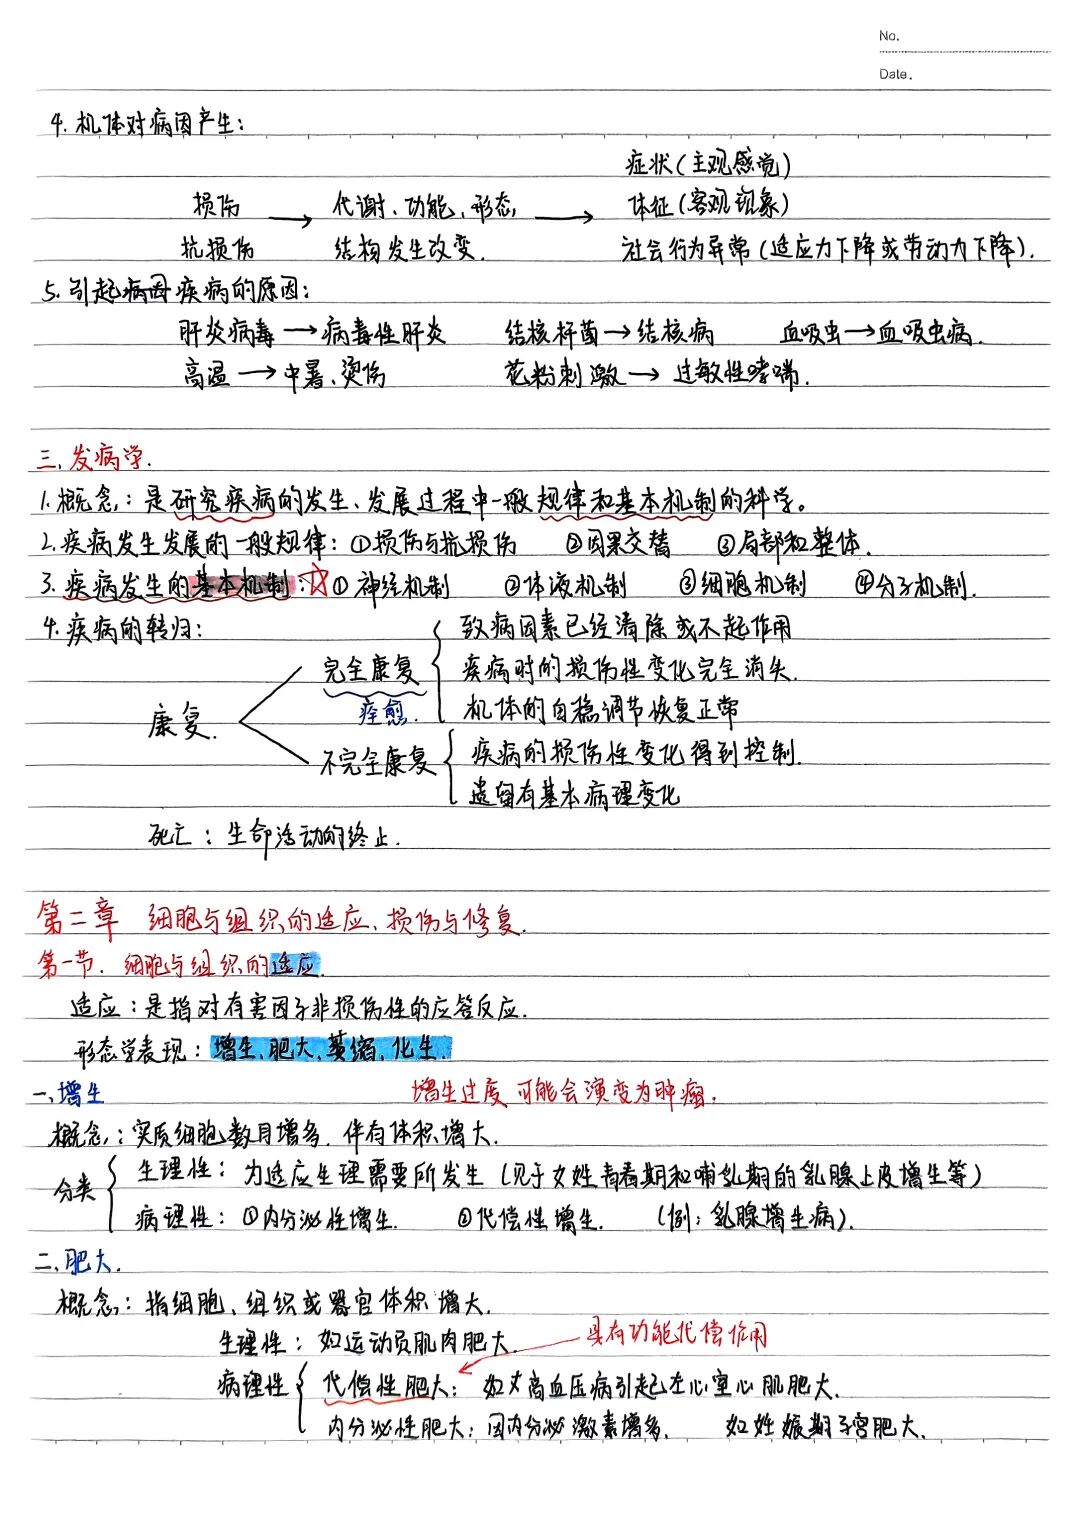 No.
Date.
4. 机体对病因产生:
症状(主观感觉)
损伤 → 代谢、功能、形态, → 体征(客观现象)
抗损伤 结构发生改变. 社会行为异常(适应力下降或劳动力下降).
5. 引起病因疾病的原因:
肝炎病毒→病毒性肝炎 结核杆菌→结核病 血吸虫→血吸虫病.
高温→中暑、烫伤 花粉刺激→过敏性哮喘.
三、发病学.
1. 概念: 是研究疾病的发生、发展过程中一般规律和基本机制的科学。
2. 疾病发生发展的一般规律: ①损伤与抗损伤 ②因果交替 ③局部和整体.
3. 疾病发生的基本机制: ☆① 神经机制 ②体液机制 ③细胞机制 ④分子机制.
4. 疾病的转归:
致病因素已经清除或不起作用
完全康复 疾病时的损伤性变化完全消失.
痊愈. 机体的自稳调节恢复正常
康复.
不完全康复 疾病的损伤性变化得到控制.
遗留有基本病理变化
死亡: 生命活动的终止.
第二章 细胞与组织的适应、损伤与修复.
第一节. 细胞与组织的适应.
适应: 是指对有害因子非损伤性的应答反应.
形态学表现: 增生、肥大、萎缩、化生.
一、增生 增生过度可能会演变为肿瘤.
概念: 实质细胞数目增多, 伴有体积增大.
分类 生理性: 为适应生理需要所发生(见于女姓青春期和哺乳期的乳腺上皮增生等)
病理性: ①内分泌性增生. ②代偿性增生. (例: 乳腺增生病).
二、肥大.
概念: 指细胞、组织或器官体积增大.
生理性: 如运动员肌肉肥大. 具有功能代偿作用
病理性 代偿性肥大: 如高血压病引起左心室心肌肥大.
内分泌性肥大: 因内分泌激素增多. 如妊娠期子宫肥大.